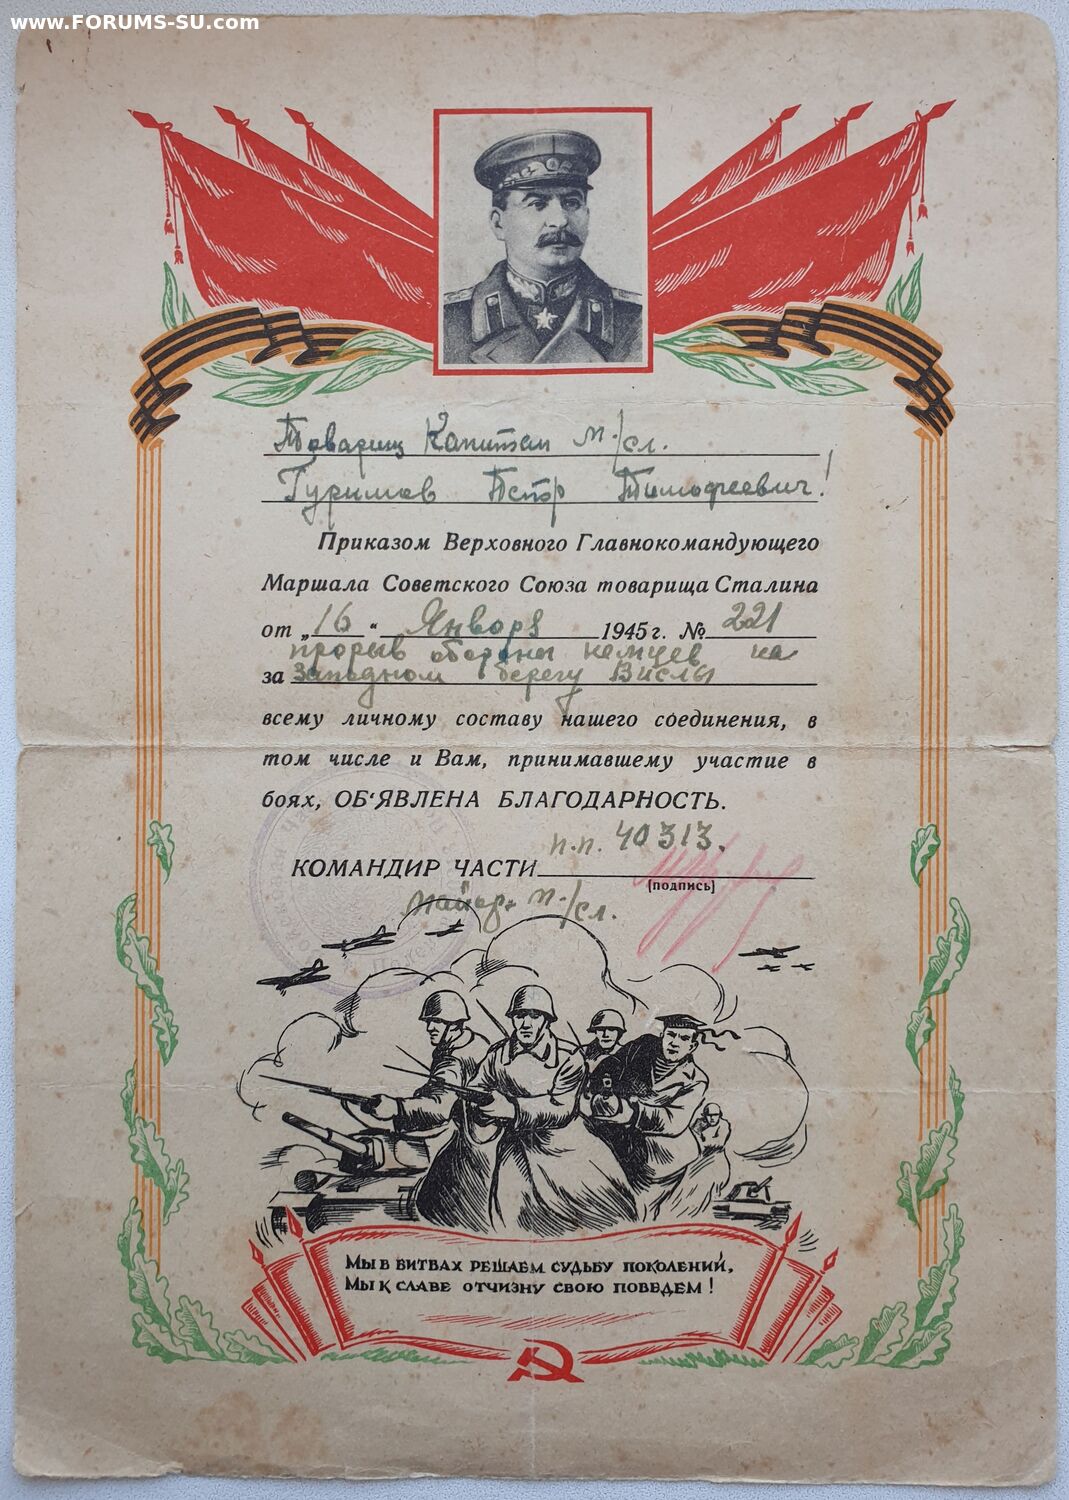 www.FORUMS-SU.com
Товарищ Капитан м/сл.
Гуримов Петр Тимофеевич!
Приказом Верховного Главнокомандующего
Маршала Советского Союза товарища Сталина
от „16“ Января 1945 г. № 221
прорыв обороны немцев на
за Западном берегу Вислы
всему личному составу нашего соединения, в
том числе и Вам, принимавшему участие в
боях, ОБ‘ЯВЛЕНА БЛАГОДАРНОСТЬ.
п.п. 40313.
КОМАНДИР ЧАСТИ
(подпись)
Майор м/сл.
МЫ В БИТВАХ РЕШАЕМ СУДЬБУ ПОКОЛЕНИЙ,
МЫ К СЛАВЕ ОТЧИЗНУ СВОЮ ПОВЕДЕМ!